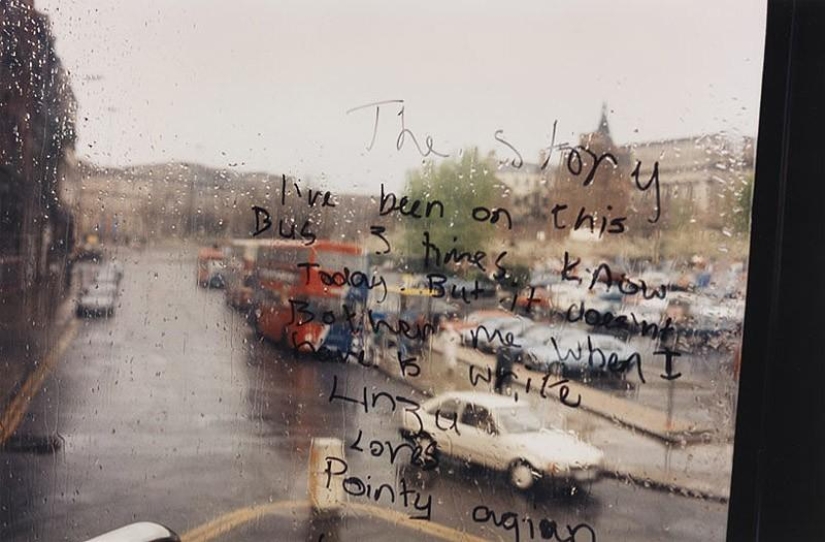 The story
I've been on this
Bus 3 times. know
Today. But it doesn't
Bother me when I
have to write
Linzu
Loves
Pointy agian